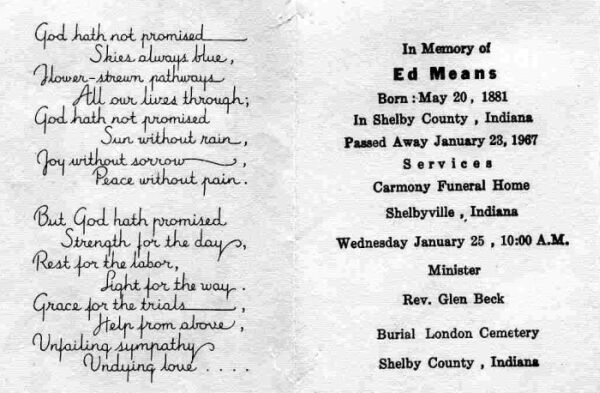 God hath not promised
Skies always blue,
Flower-strewn pathways
All our lives through;
God hath not promised
Sun without rain,
Joy without sorrow,
Peace without pain.
But God hath promised
Strength for the day,
Rest for the labor,
Light for the way.
Grace for the trials,
Help from above,
Unfailing sympathy
Undying love ....
In Memory of
Ed Means
Born : May 20, 1881
In Shelby County, Indiana
Passed Away January 23, 1967
Services
Carmony Funeral Home
Shelbyville, Indiana
Wednesday January 25, 10:00 A.M.
Minister
Rev. Glen Beck
Burial London Cemetery
Shelby County, Indiana